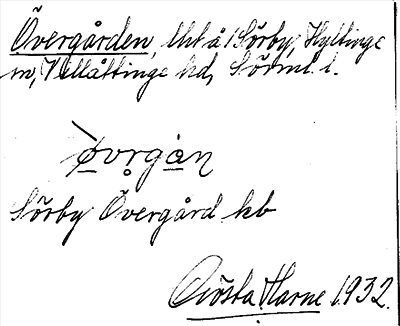 Övergården, lht å 1 Sörby, Hyltinge
sn, Villåttinge hd, Sörml. l.
øvrgån
Sörby Övergård kb
Harne 1932.